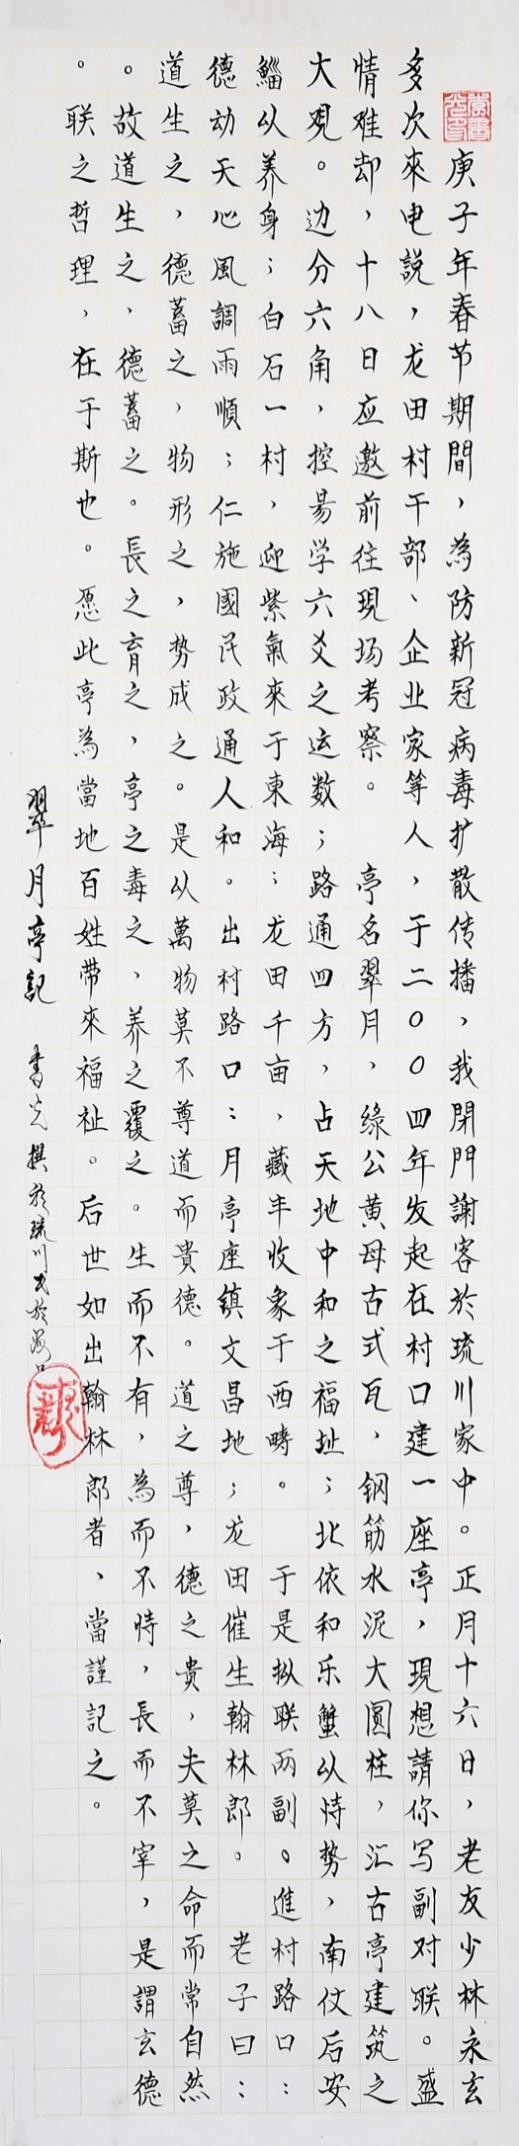 庚子年春节期間，為防新冠病毒扩散传播，我閉門謝客於琉川家中。正月十六日，老友少林永玄
多次來电説，龙田村干部、企业家等人，于二００四年发起在村口建一座亭，現想請你写副对联。盛
情难却，十八日应邀前往現场考察。　亭名翠月，绿公黄母古式瓦，钢筋水泥大圆柱，汇古亭建筑之
大观。边分六角，控易学六爻之运数；路通四方，占天地中和之福址；北依和乐蟹以恃势，南仗后安
鯔以养身；白石一村，迎紫氣來于東海；龙田千亩，藏丰收象于西畴。　于是拟联两副。進村路口：
德动天心風調雨順；仁施國民政通人和。出村路口：月亭座鎮文昌地；龙田催生翰林郎。　老子曰：
道生之，德蓄之，物形之，势成之。是以萬物莫不尊道而貴德。道之尊，德之贵，夫莫之命而常自然
。故道生之，德蓄之。長之育之，亭之毒之，养之覆之。生而不有，為而不恃，長而不宰，是謂玄德
。联之哲理，在于斯也。愿此亭為當地百姓带來福祉。后世如出翰林郎者，當謹記之。
翠月亭記　書光撰於琉川